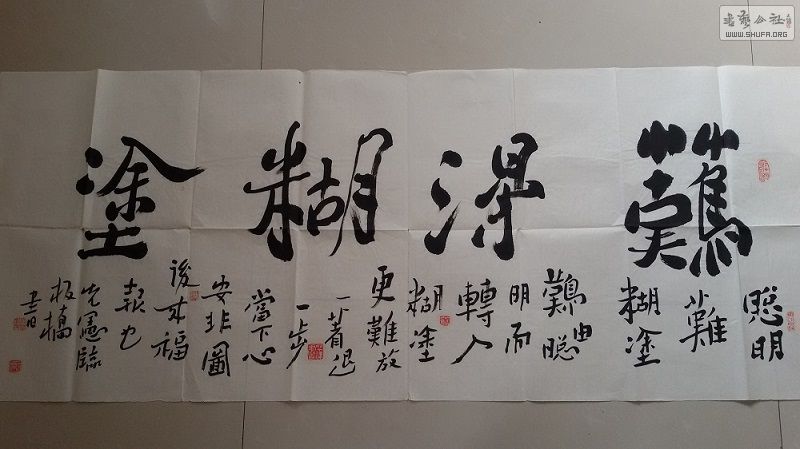 難得糊塗
聰明
難
糊塗
難由聰
明而
轉入
糊塗
更難放
一著退
一步
當下心
安非圖
後来福
報也
先憲臨
板橋
書
书艺公社
WWW.SHUFA.ORG